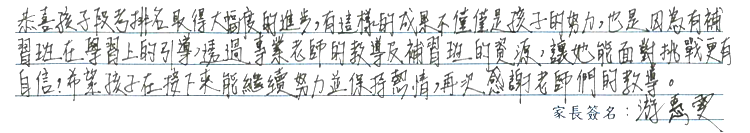 恭喜孩子段考排名取得大幅度的進步,有這樣的成果不僅僅是孩子的努力,也是因為有補
習班在學習上的引導,透過專業老師的教導及補習班的資源,讓她能面對挑戰更有
自信!希望孩子在接下來能繼續努力並保持熱情,再次感謝老師們的教導。
家長簽名:游惠雯